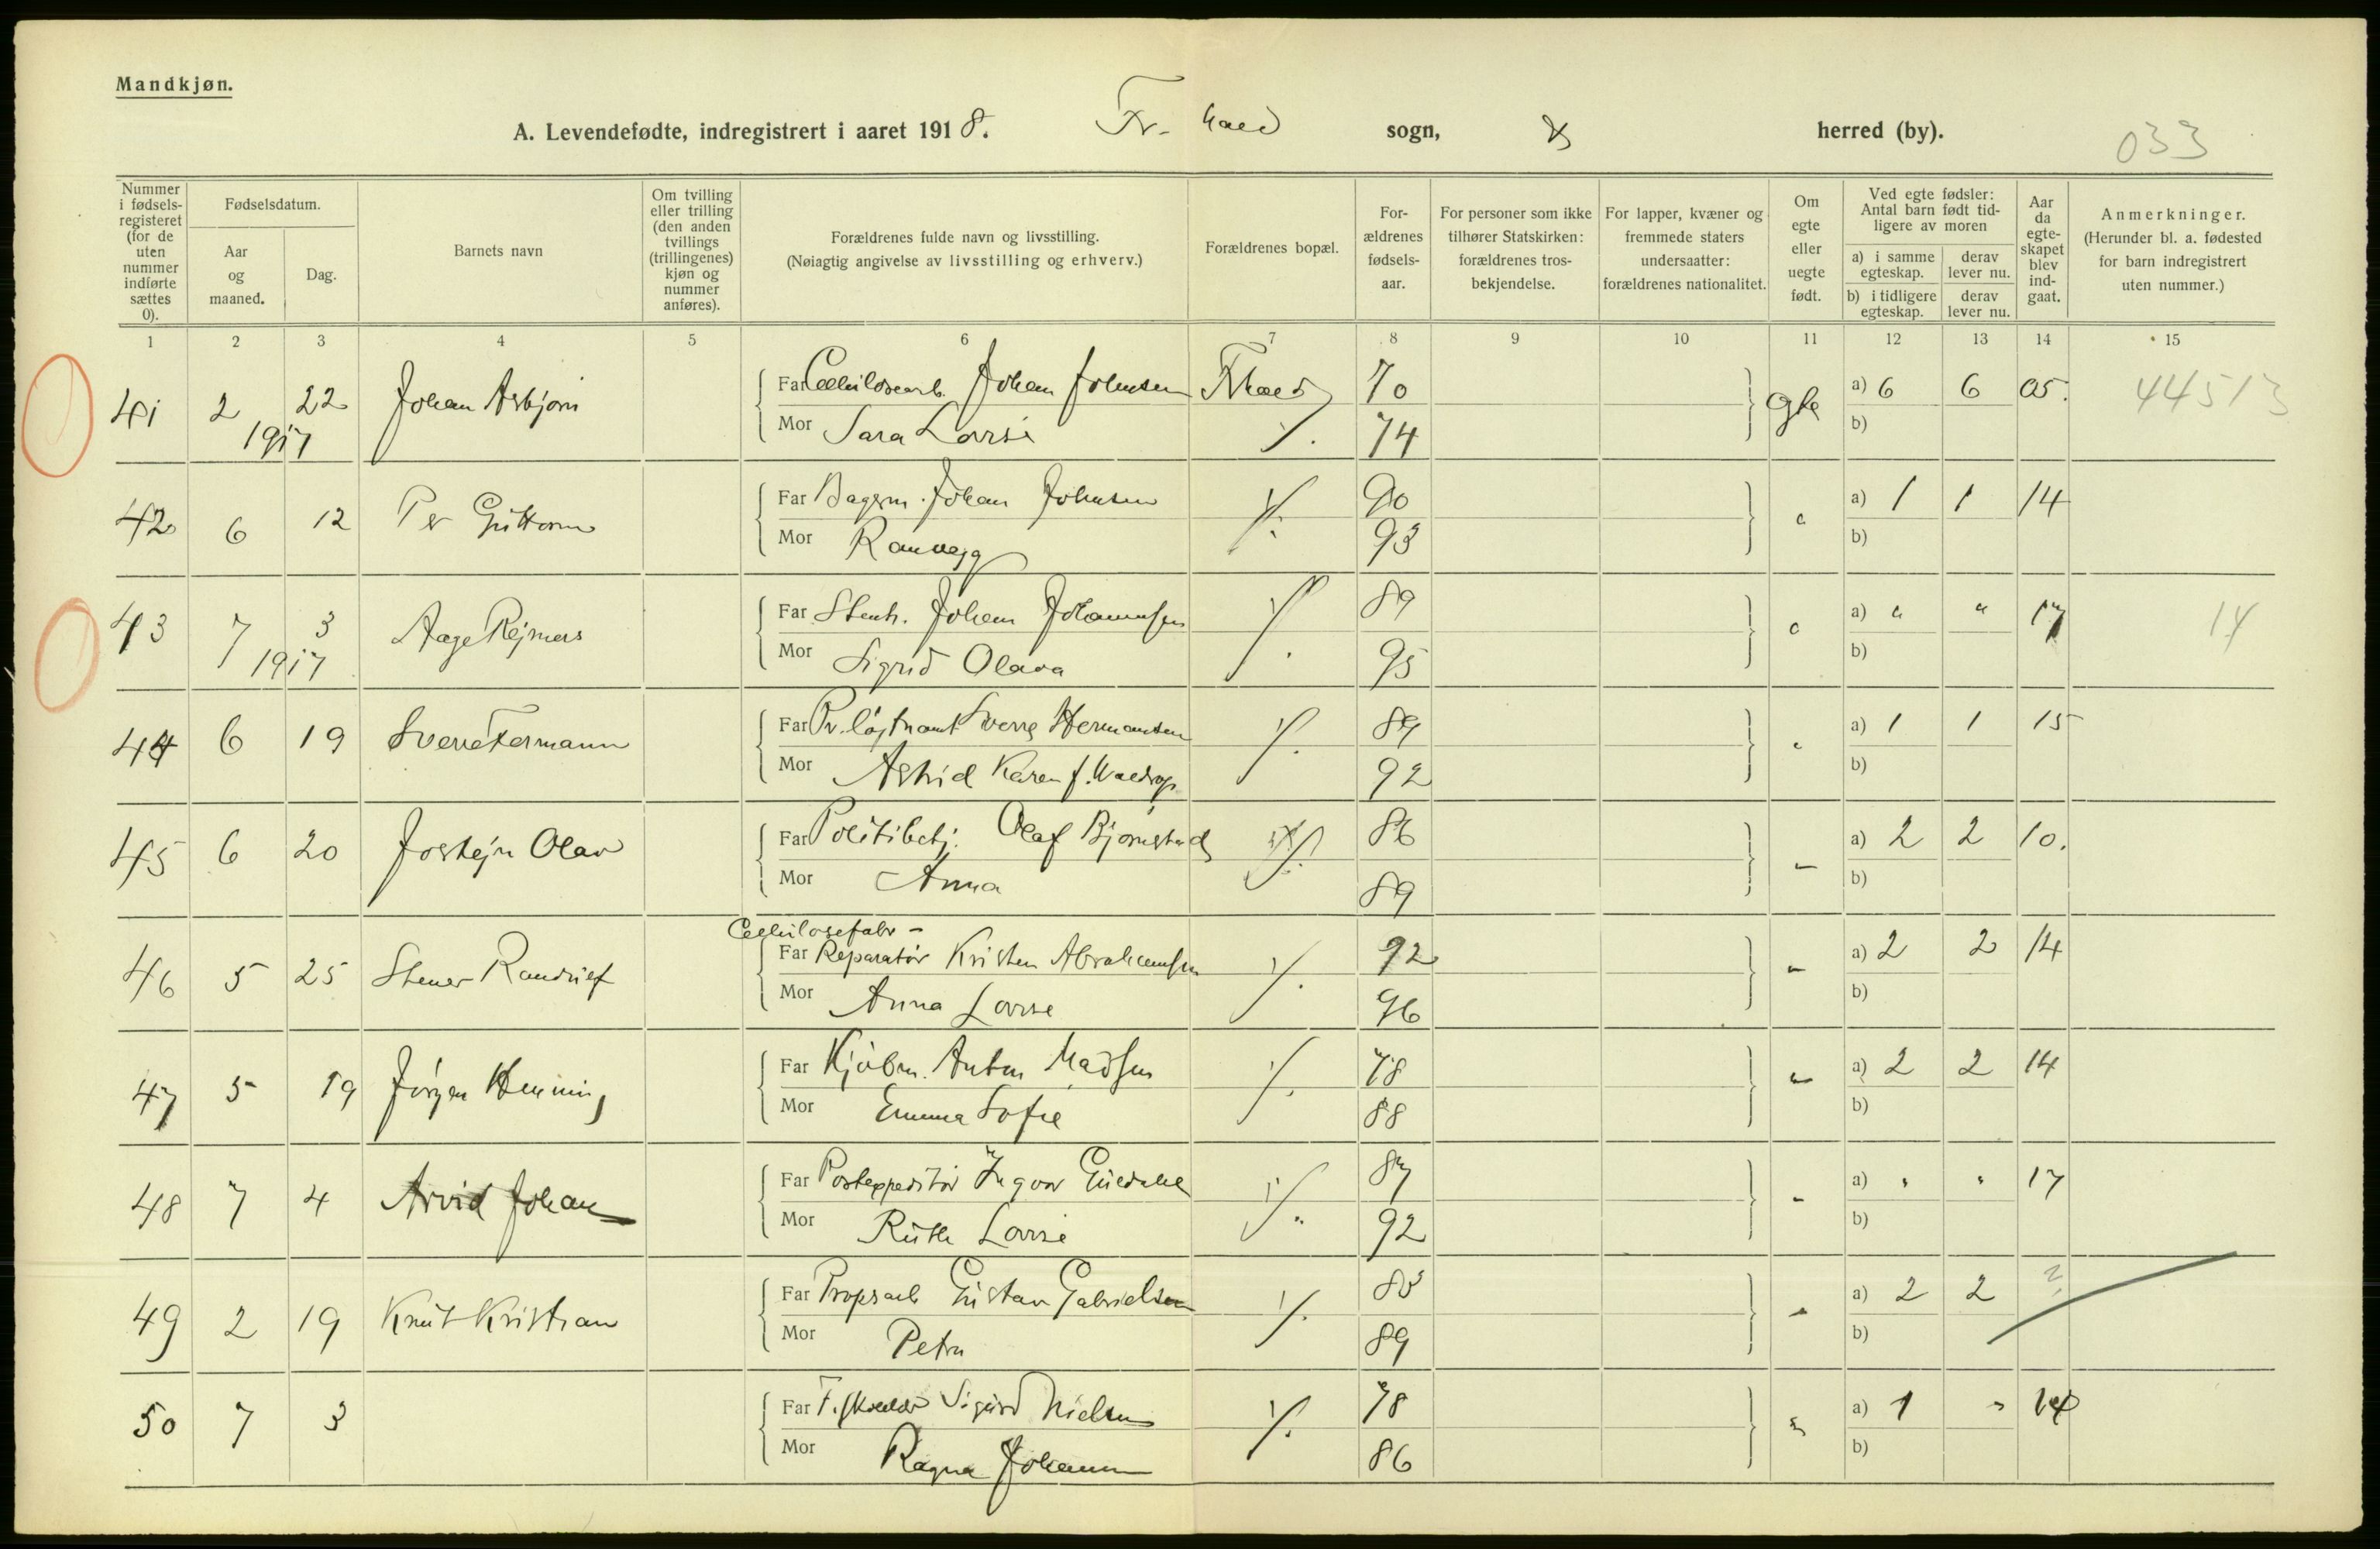 Mandkjøn.
A. Levendefødte, indregistrert i aaret 1918. Fr. hald sogn, herred (by).
033
Nummer i fødsels-registeret (for de uten nummer indførte sættes 0).
Fødselsdatum.
Aar og maaned.
Dag.
Barnets navn
Om tvilling eller trilling (den anden tvillings (trillingenes) kjøn og nummer anføres).
Forældrenes fulde navn og livsstilling.
(Nøiagtig angivelse av livsstilling og erhverv.)
Forældrenes bopæl.
For-ældrenes fødsels-aar.
For personer som ikke tilhører Statskirken: forældrenes tros-bekjendelse.
For lapper, kvæner og fremmede staters undersaatter: forældrenes nationalitet.
Om egte eller uegte født.
Ved egte fødsler: Antal barn født tid-ligere av moren
a) i samme egteskap.
derav lever nu.
b) i tidligere egteskap.
derav lever nu.
Aar da egte-skapet blev ind-gaat.
Anmerkninger.
(Herunder bl. a. fødested for barn indregistrert uten nummer.)
1 2 3 4 5 6 7 8 9 10 11 12 13 14 15
41 2 22 Johan Asbjørn Far Cellulosearb. Johan Johnsen Fr.hald 70 egte a) 6 6 05. 44513
1917 Mor Sara Lovise ./. 74 b)
42 6 12 Per Guttorm Far Bagerm. Johan Johnsen ./. 90 a) 1 1 14
Mor Ranveig 93 b)
43 7 3 Aage Rejmers Far Stenh. Johan Johannesen ./. 89 a) " " 17 17
1917 Mor Sigrid Olava 95 b)
44 6 19 Sverre Hermann Far Pr. løjtnant Sverre Hermansen ./. 89 a) 1 1 15
Mor Astrid Karen f. 92 b)
45 6 20 Jostejn Olav Far Politibetj. Olaf Bjørnstad ./. 86 a) 2 2 10.
Mor Anna 89 b)
Cellulosefabr-
46 5 25 Stener Far Reparatør Kristen Abrahamsen ./. 92 a) 2 2 14
Mor Anna Lovise 96 b)
47 5 19 Jørgen Henning Far Kjøbm. Anton Madsen ./. 78 a) 2 2 14
Mor Emma Sofie 88 b)
48 7 4 Arvid Johan Far Postexpeditør Ingvar ./. 87 a) " " 17
Mor Ruth Lovise 92 b)
49 2 19 Knut Kristian Far Gustav Gabrielsen ./. a) 2 2 ?
Mor Petra 89 b)
50 7 3 Far Sigurd Nielsen ./. 78 a) 1 " 14
Mor Ragna Johanne 86 b)